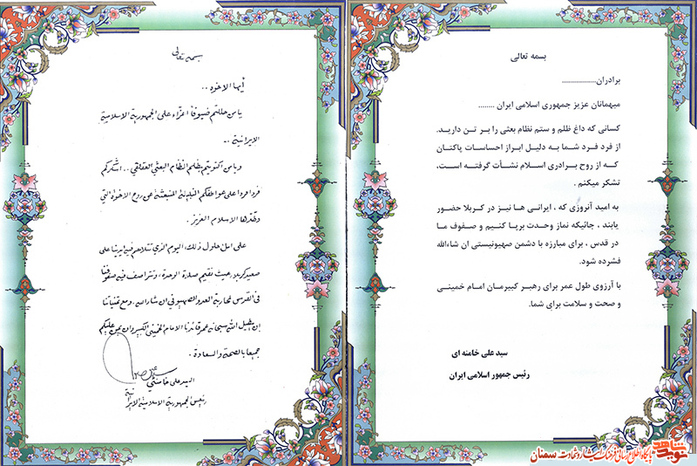 بسمه تعالی
أيها الاخوة ..
يا من حللتم ضيوفاً اعزاء على الجمهورية الاسلامية
الايرانية ..
ويا من اكتويتم بظلم النظام البعثي العفلقي .. اشكركم
فرداً فرداً على عواطفكم النبيلة المنبعثة عن روح الأخوة التي
الاسلام العزيز .
على امل حلول ذلك اليوم الذي تتلاحم فيه ايدينا على
صعيد كربلاء حيث نقيم صلاة الوحدة، وتتراصف فيه صفوفنا
في القدس لمحاربة العدو الصهيوني ان شاء الله . ومع تمنياتنا
ان يطيل الله سبحانه عمر قائدنا الامام الخميني الكبير وان يمن عليكم
جميعاً بالصحة والسعادة .
السيد علي خامنئي
رئيس الجمهورية الاسلامية الايرانية
بسمه تعالی
برادران....................
میهمانان عزیز جمهوری اسلامی ایران ........
کسانی که داغ ظلم و ستم نظام بعثی را بر تن دارید.
از فرد فرد شما به دلیل ابراز احساسات پاکتان
که از روح برادری اسلام نشأت گرفته است.
تشکر میکنم .
به امید آنروزی که ، ایرانی ها نیز در کربلا حضور
یابند ، جائیکه نماز وحدت برپا کنیم و صفوف ما
در قدس ، برای مبارزه با دشمن صهیونیستی ان شاءالله
فشرده شود.
با آرزوی طول عمر برای رهبر کبیرمان امام خمینی
و صحت و سلامت برای شما.
سید علی خامنه ای
رئیس جمهور اسلامی ایران
نوید شاهد
پایگاه اطلاع رسانی فرهنگ ایثار و شهادت سمنان